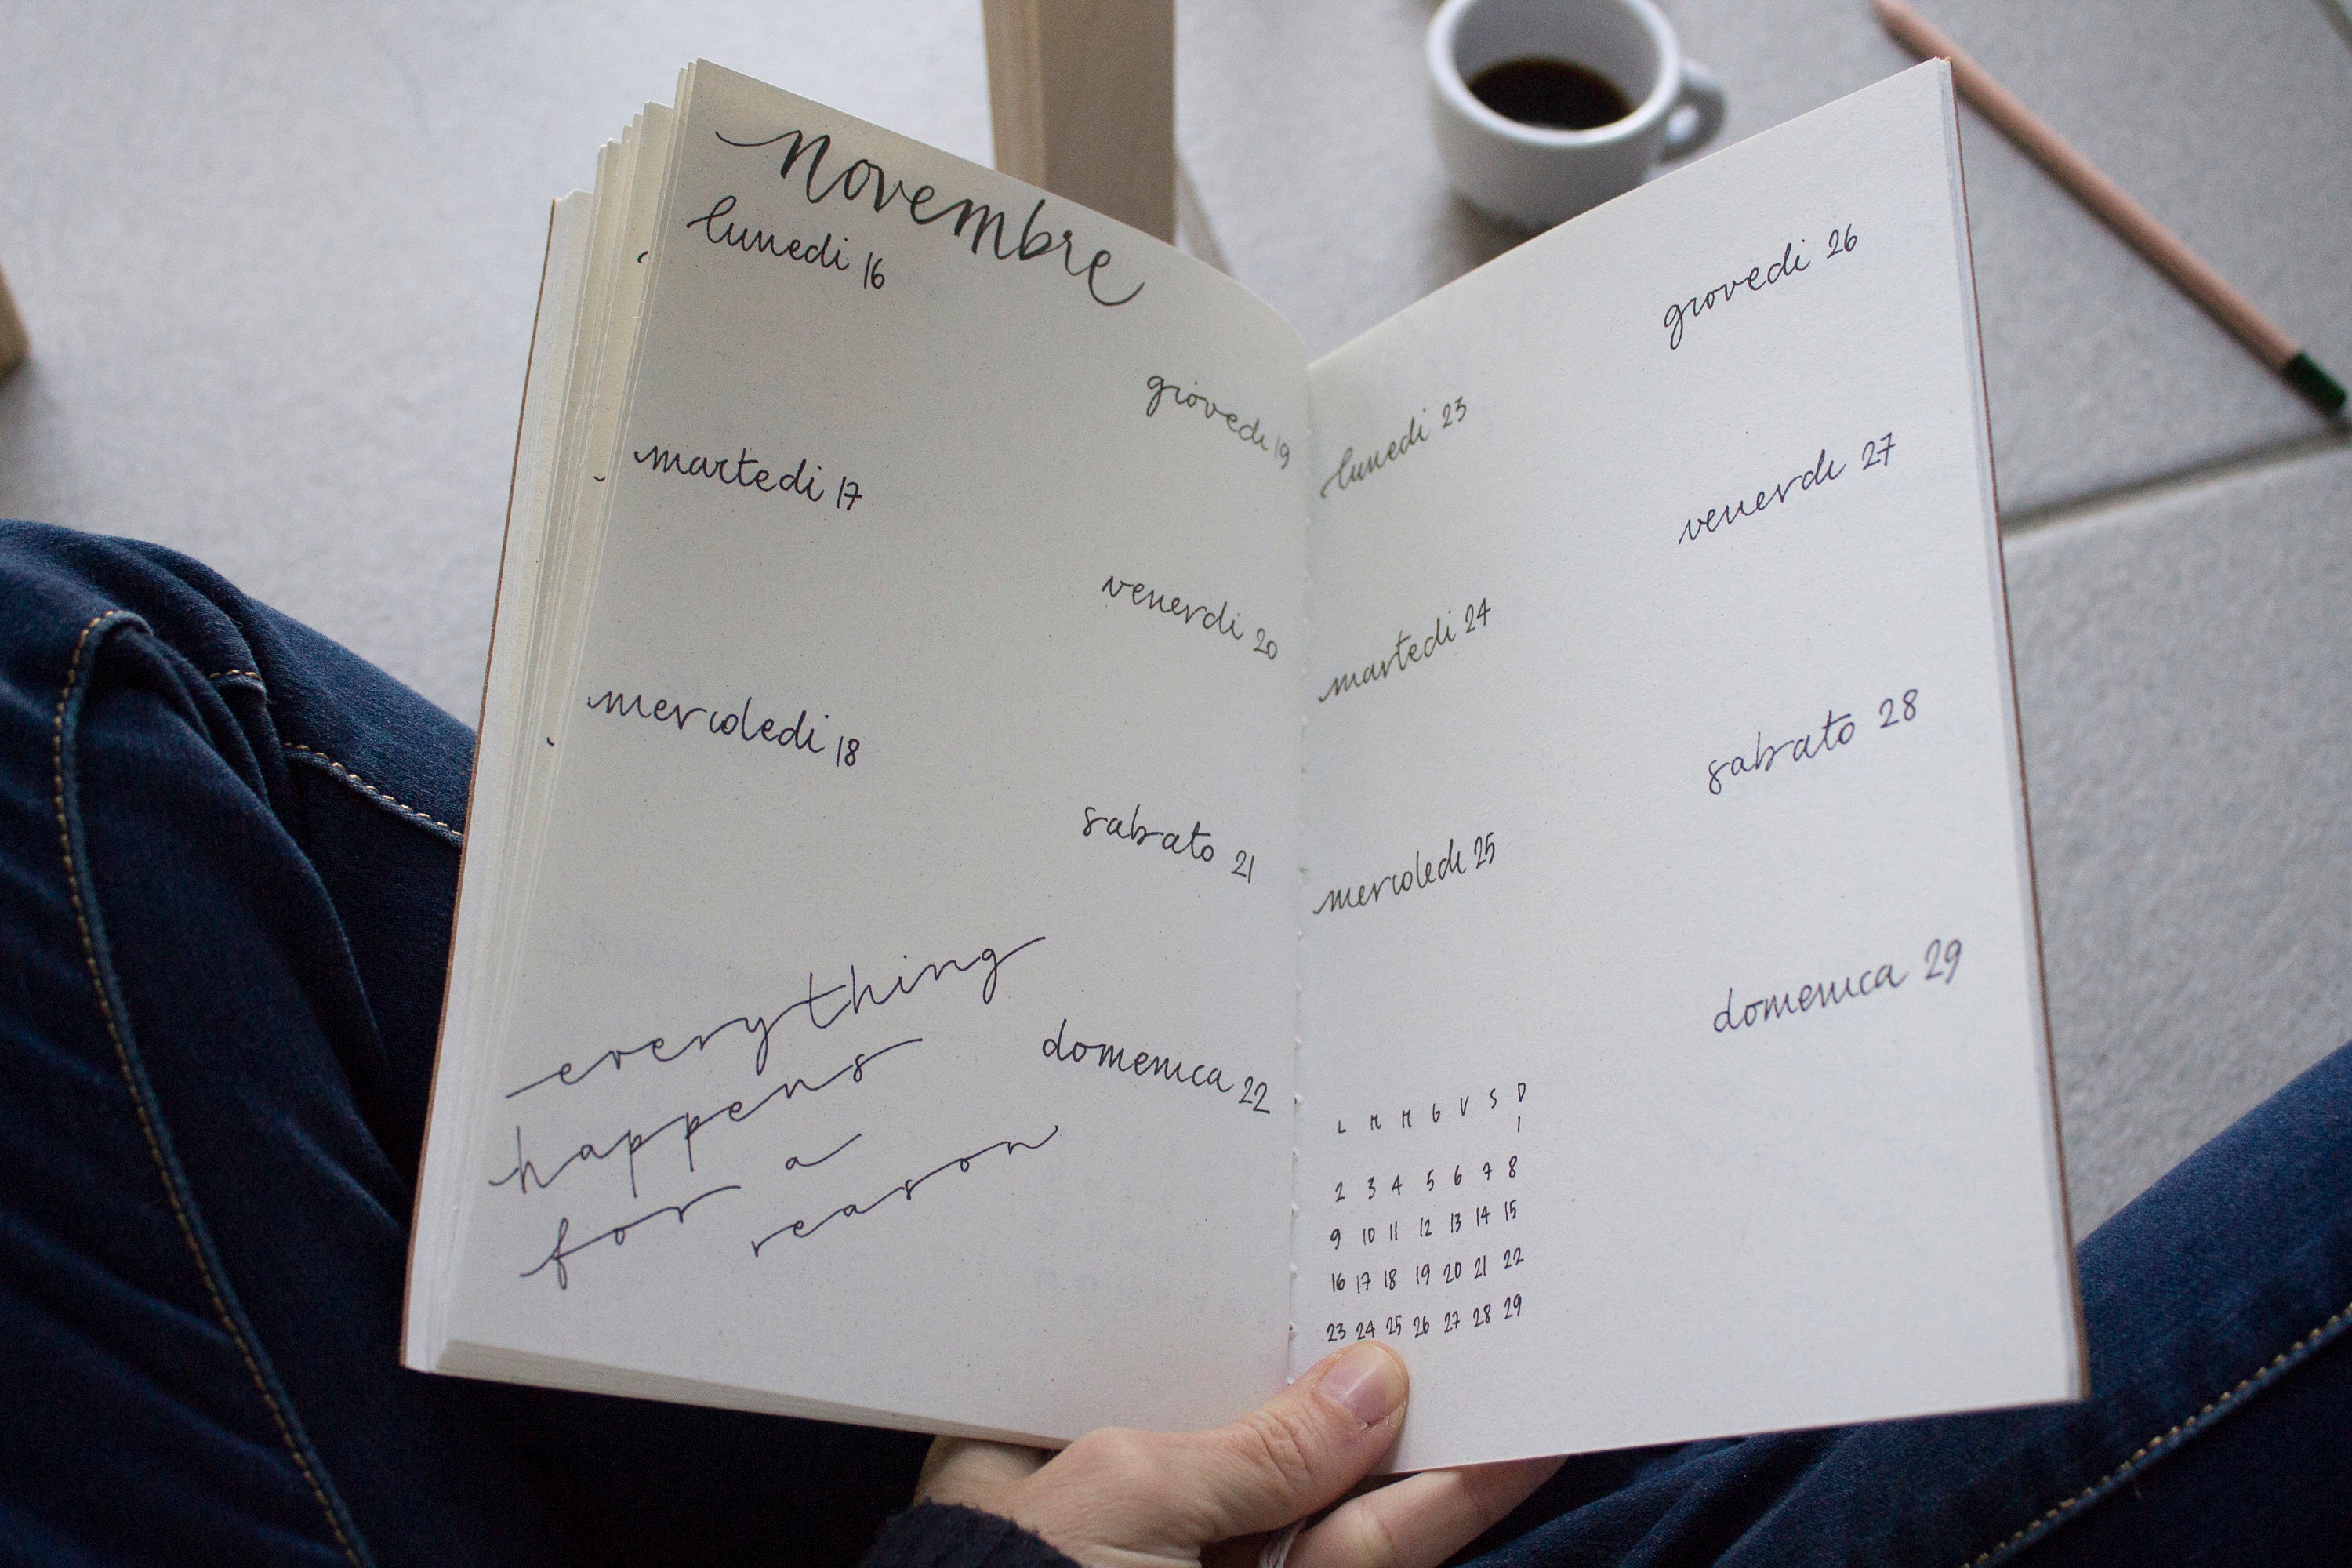 novembre
lunedi 16
martedi 17
mercoledi 18
giovedi 19
venerdi 20
sabato 21
domenica 22
everything
happens
for a
reason
lunedi 23
martedi 24
mercoledi 25
giovedi 26
venerdi 27
sabato 28
domenica 29
L M M G V S D
1
2 3 4 5 6 7 8
9 10 11 12 13 14 15
16 17 18 19 20 21 22
23 24 25 26 27 28 29